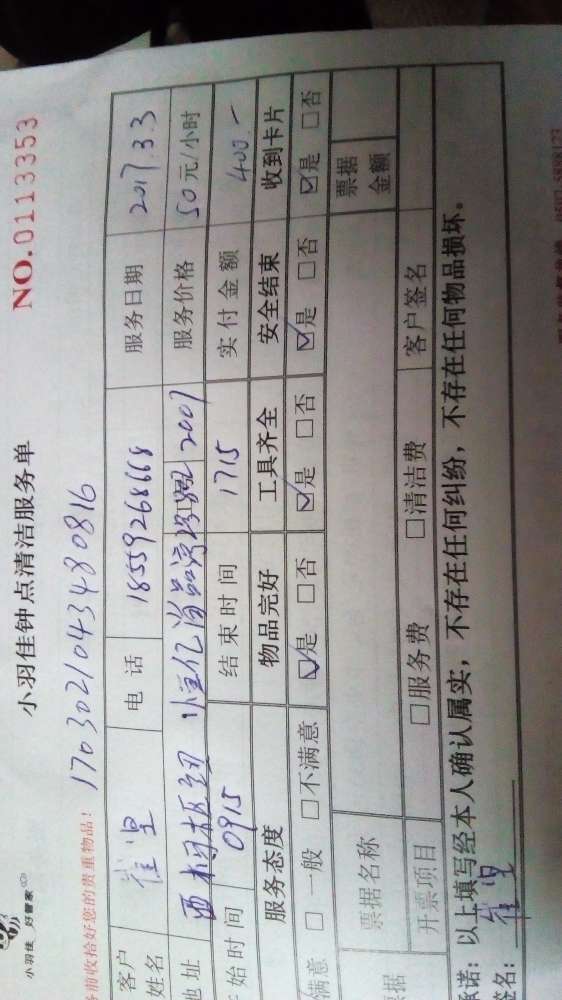 小羽佳 好管家
小羽佳钟点清洁服务单
NO.0113353
前收拾好您的贵重物品！
170302104348 0816
客户姓名 电话 18559268668 服务日期 2017.3.3
地址 2007 服务价格 50元/小时
始时间 0915 结束时间 1715 实付金额 400.-
服务态度 物品完好 工具齐全 安全结束 收到卡片
满意 □一般 □不满意 ☑是 □否 ☑是 □否 ☑是 □否 ☑是 □否
据 票据名称 票据金额
开票项目 □服务费 □清洁费 客户签名
承诺：以上填写经本人确认属实，不存在任何纠纷，不存在任何物品损坏。
签名：